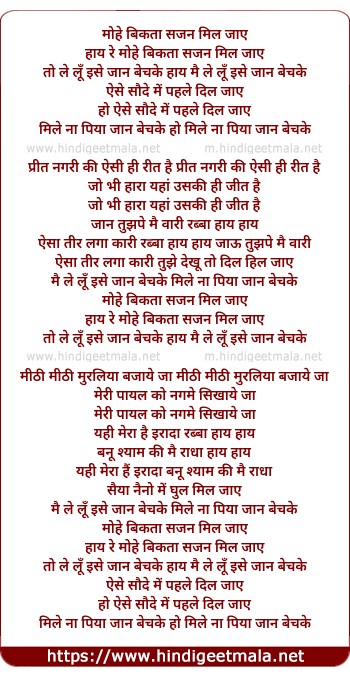 मोहे बिकता सजन मिल जाए
हाय रे मोहे बिकता सजन मिल जाए
तो ले लूँ इसे जान बेचके हाय मै ले लूँ इसे जान बेचके
ऐसे सौदे में पहले दिल जाए
हो ऐसे सौदे में पहले दिल जाए
मिले ना पिया जान बेचके हो मिले ना पिया जान बेचके
www.hindigeetmala.net m.hindigeetmala.net
प्रीत नगरी की ऐसी ही रीत है प्रीत नगरी की ऐसी ही रीत है
जो भी हारा यहां उसकी ही जीत है
जो भी हारा यहां उसकी ही जीत है
जान तुझपे मै वारी रब्बा हाय हाय
ऐसा तीर लगा कारी रब्बा हाय हाय जाऊ तुझपे मै वारी
ऐसा तीर लगा कारी तुझे देखू तो दिल हिल जाए
मै ले लूँ इसे जान बेचके मिले ना पिया जान बेचके
मोहे बिकता सजन मिल जाए
हाय रे मोहे बिकता सजन मिल जाए
तो ले लूँ इसे जान बेचके हाय मै ले लूँ इसे जान बेचके
www.hindigeetmala.net m.hindigeetmala.net
मीठी मीठी मुरलिया बजाये जा मीठी मीठी मुरलिया बजाये जा
मेरी पायल को नगमे सिखाये जा
मेरी पायल को नगमे सिखाये जा
यही मेरा है इरादा रब्बा हाय हाय
बनू श्याम की मै राधा हाय हाय
यही मेरा हैं इरादा बनू श्याम की मै राधा
सैया नैनो में घुल मिल जाए
मै ले लूँ इसे जान बेचके मिले ना पिया जान बेचके
मोहे बिकता सजन मिल जाए
हाय रे मोहे बिकता सजन मिल जाए
तो ले लूँ इसे जान बेचके हाय मै ले लूँ इसे जान बेचके
ऐसे सौदे में पहले दिल जाए
हो ऐसे सौदे में पहले दिल जाए
मिले ना पिया जान बेचके हो मिले ना पिया जान बेचके
https://www.hindigeetmala.net